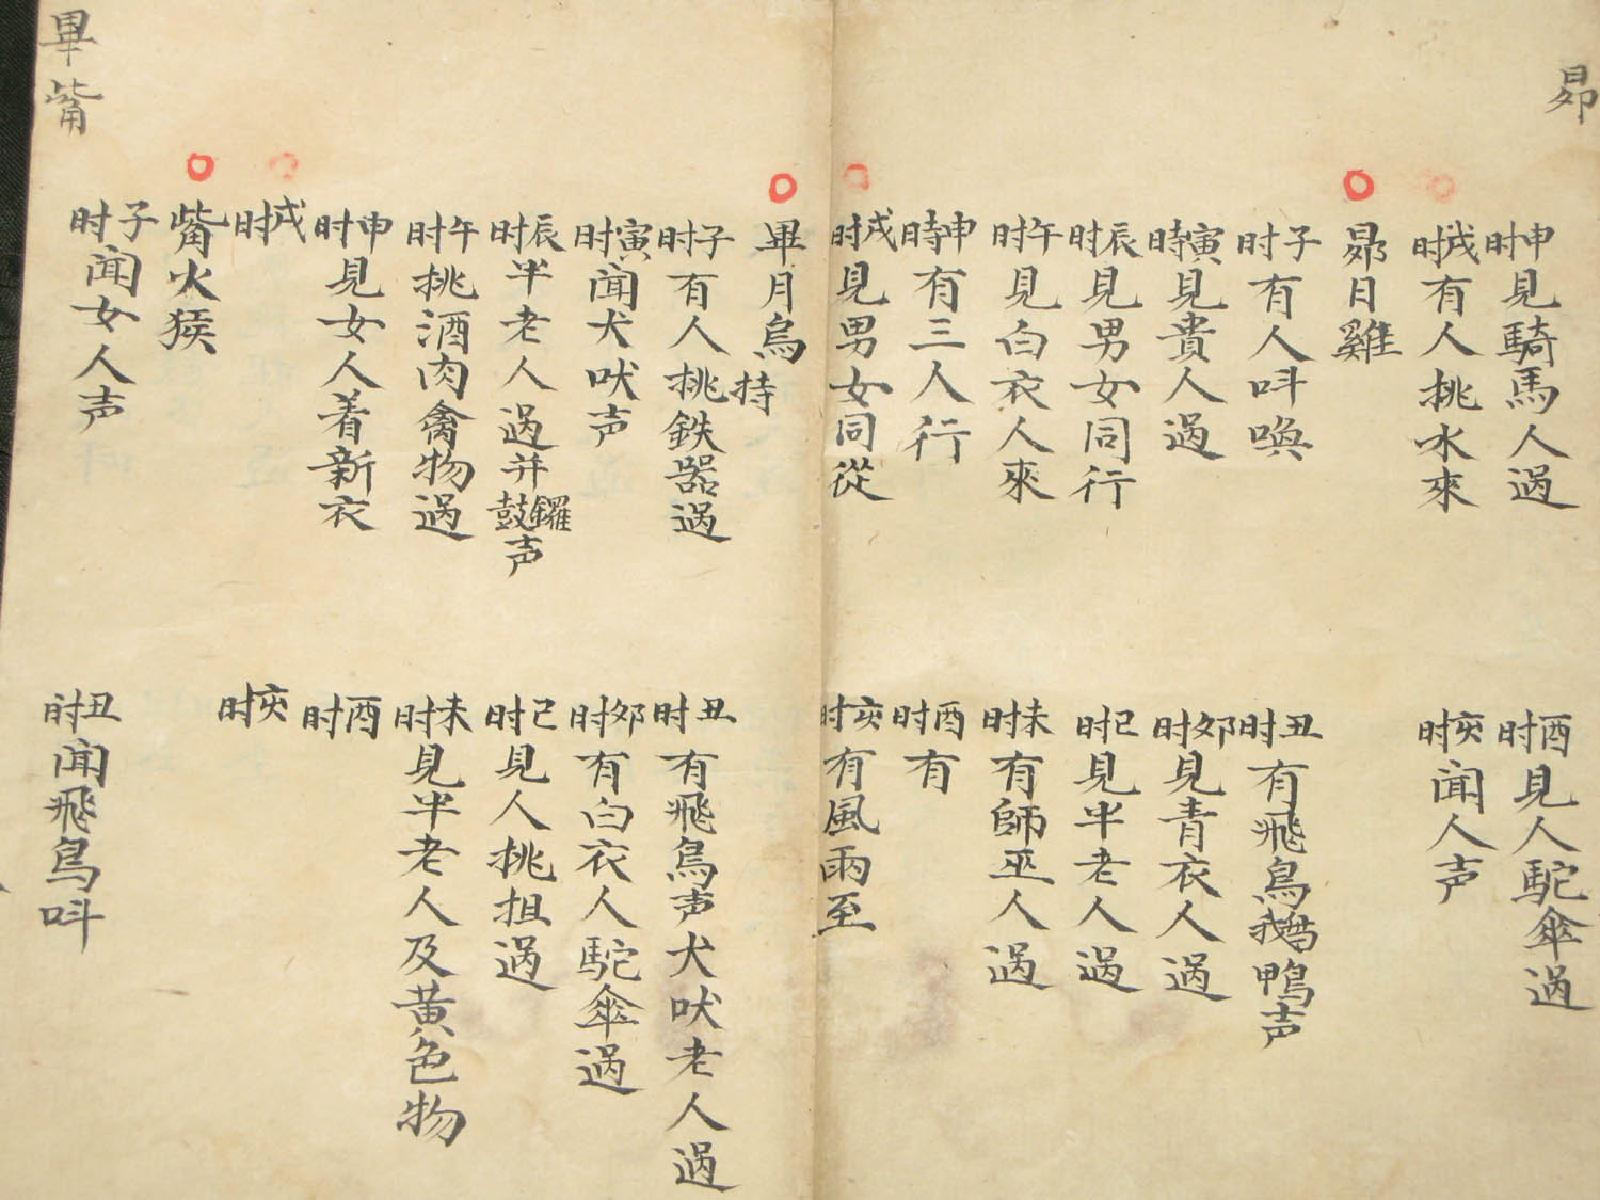 昴
申时見騎馬人過
酉时見人駝傘過
戌时有人挑水來
亥时闻人声
昴日雞
子时有人呌喚
丑时有飛鳥鵝鴨声
寅時見貴人過
卯时見青衣人過
辰时見男女同行
巳时見半老人過
午时見白衣人來
未时有師巫人過
申時有三人行
酉时有
戌时見男女同從
亥时有風雨至
畢月烏
持
子时有人挑鉄器過
丑时有飛鳥声犬吠老人過
寅时闻犬吠声
卯时有白衣人駝傘過
辰时半老人過并鑼鼓声
巳时見人挑担過
午时挑酒肉禽物過
未时見半老人及黄色物
申时見女人着新衣
酉时
戌时
亥时
觜火猴
子时闻女人声
丑时闻飛鳥呌
畢觜